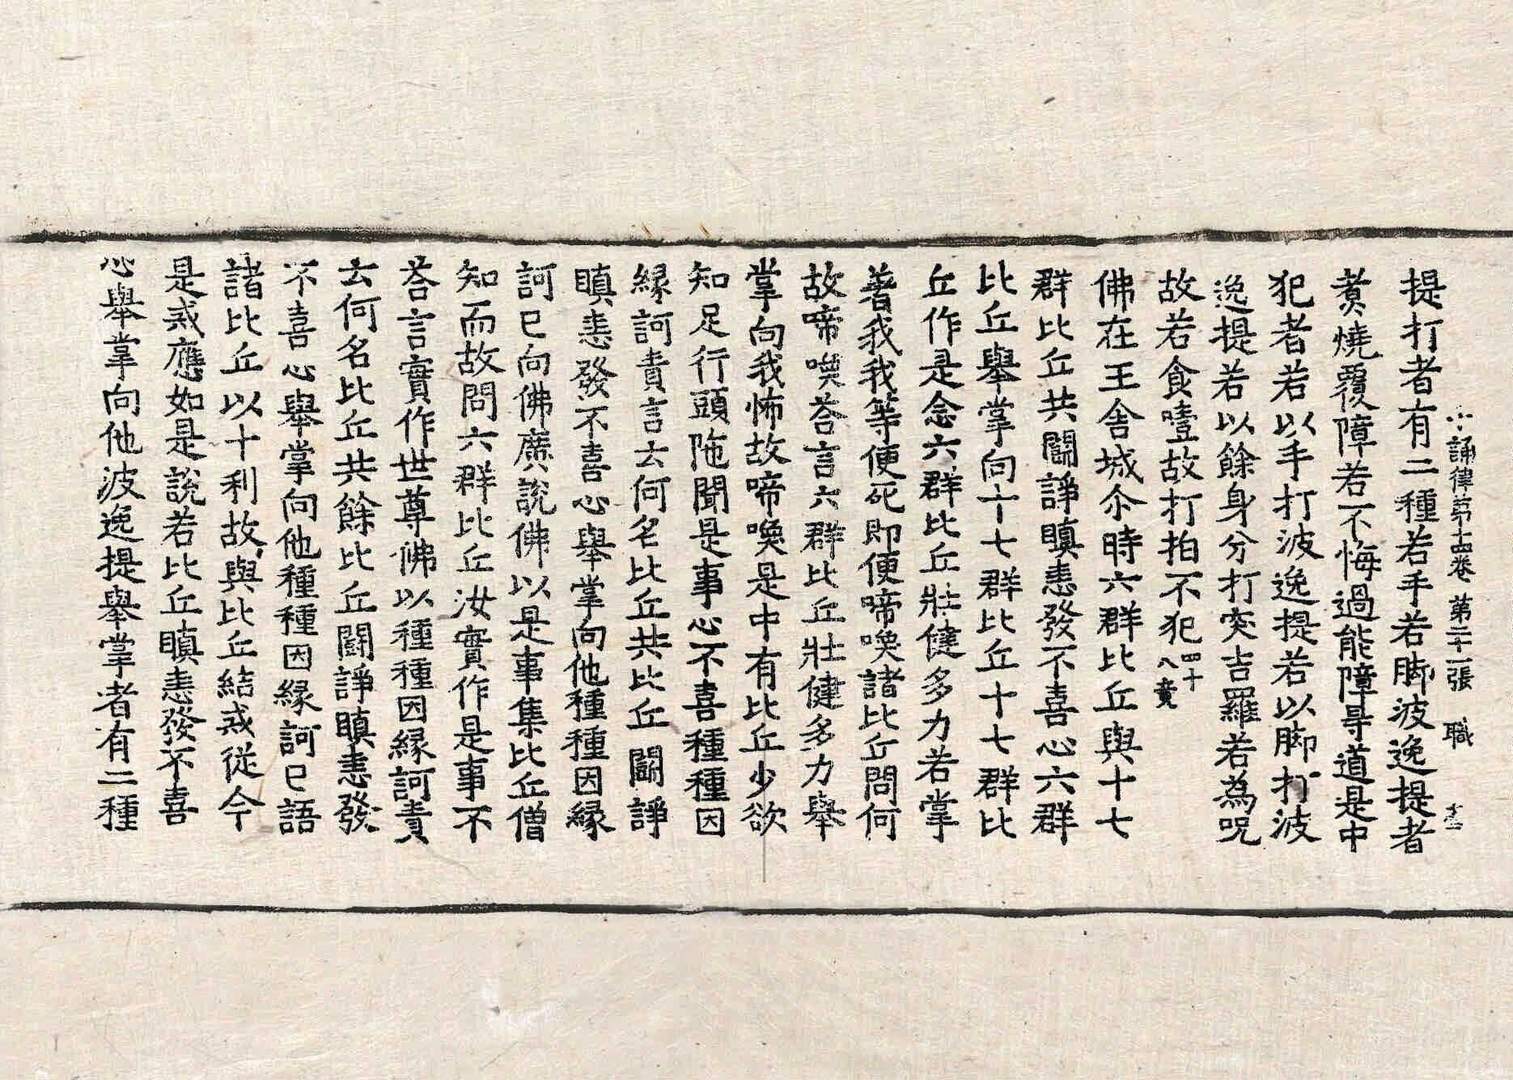 十誦律第十四卷 第二十一張 職
提打者有二種若手若脚波逸提者
煑燒覆障若不悔過能障㝵道是中
犯者若以手打波逸提若以脚打波
逸提若以餘身分打突吉羅若為呪
故若食噎故打拍不犯四十八竟
佛在王舍城尒時六群比丘與十七
群比丘共鬪諍瞋恚發不喜心六群
比丘舉掌向十七群比丘十七群比
丘作是念六群比丘壯健多力若掌
著我我等便死即便啼喚諸比丘問何
故啼喚荅言六群比丘壯健多力舉
掌向我怖故啼喚是中有比丘少欲
知足行頭陁聞是事心不喜種種因
緣訶責言云何名比丘共比丘鬪諍
瞋恚發不喜心舉掌向他種種因緣
訶已向佛廣說佛以是事集比丘僧
知而故問六群比丘汝實作是事不
荅言實作世尊佛以種種因緣訶責
云何名比丘共餘比丘鬪諍瞋恚發
不喜心舉掌向他種種因緣訶已語
諸比丘以十利故與比丘結戒從今
是戒應如是說若比丘瞋恚發不喜
心舉掌向他波逸提舉掌者有二種